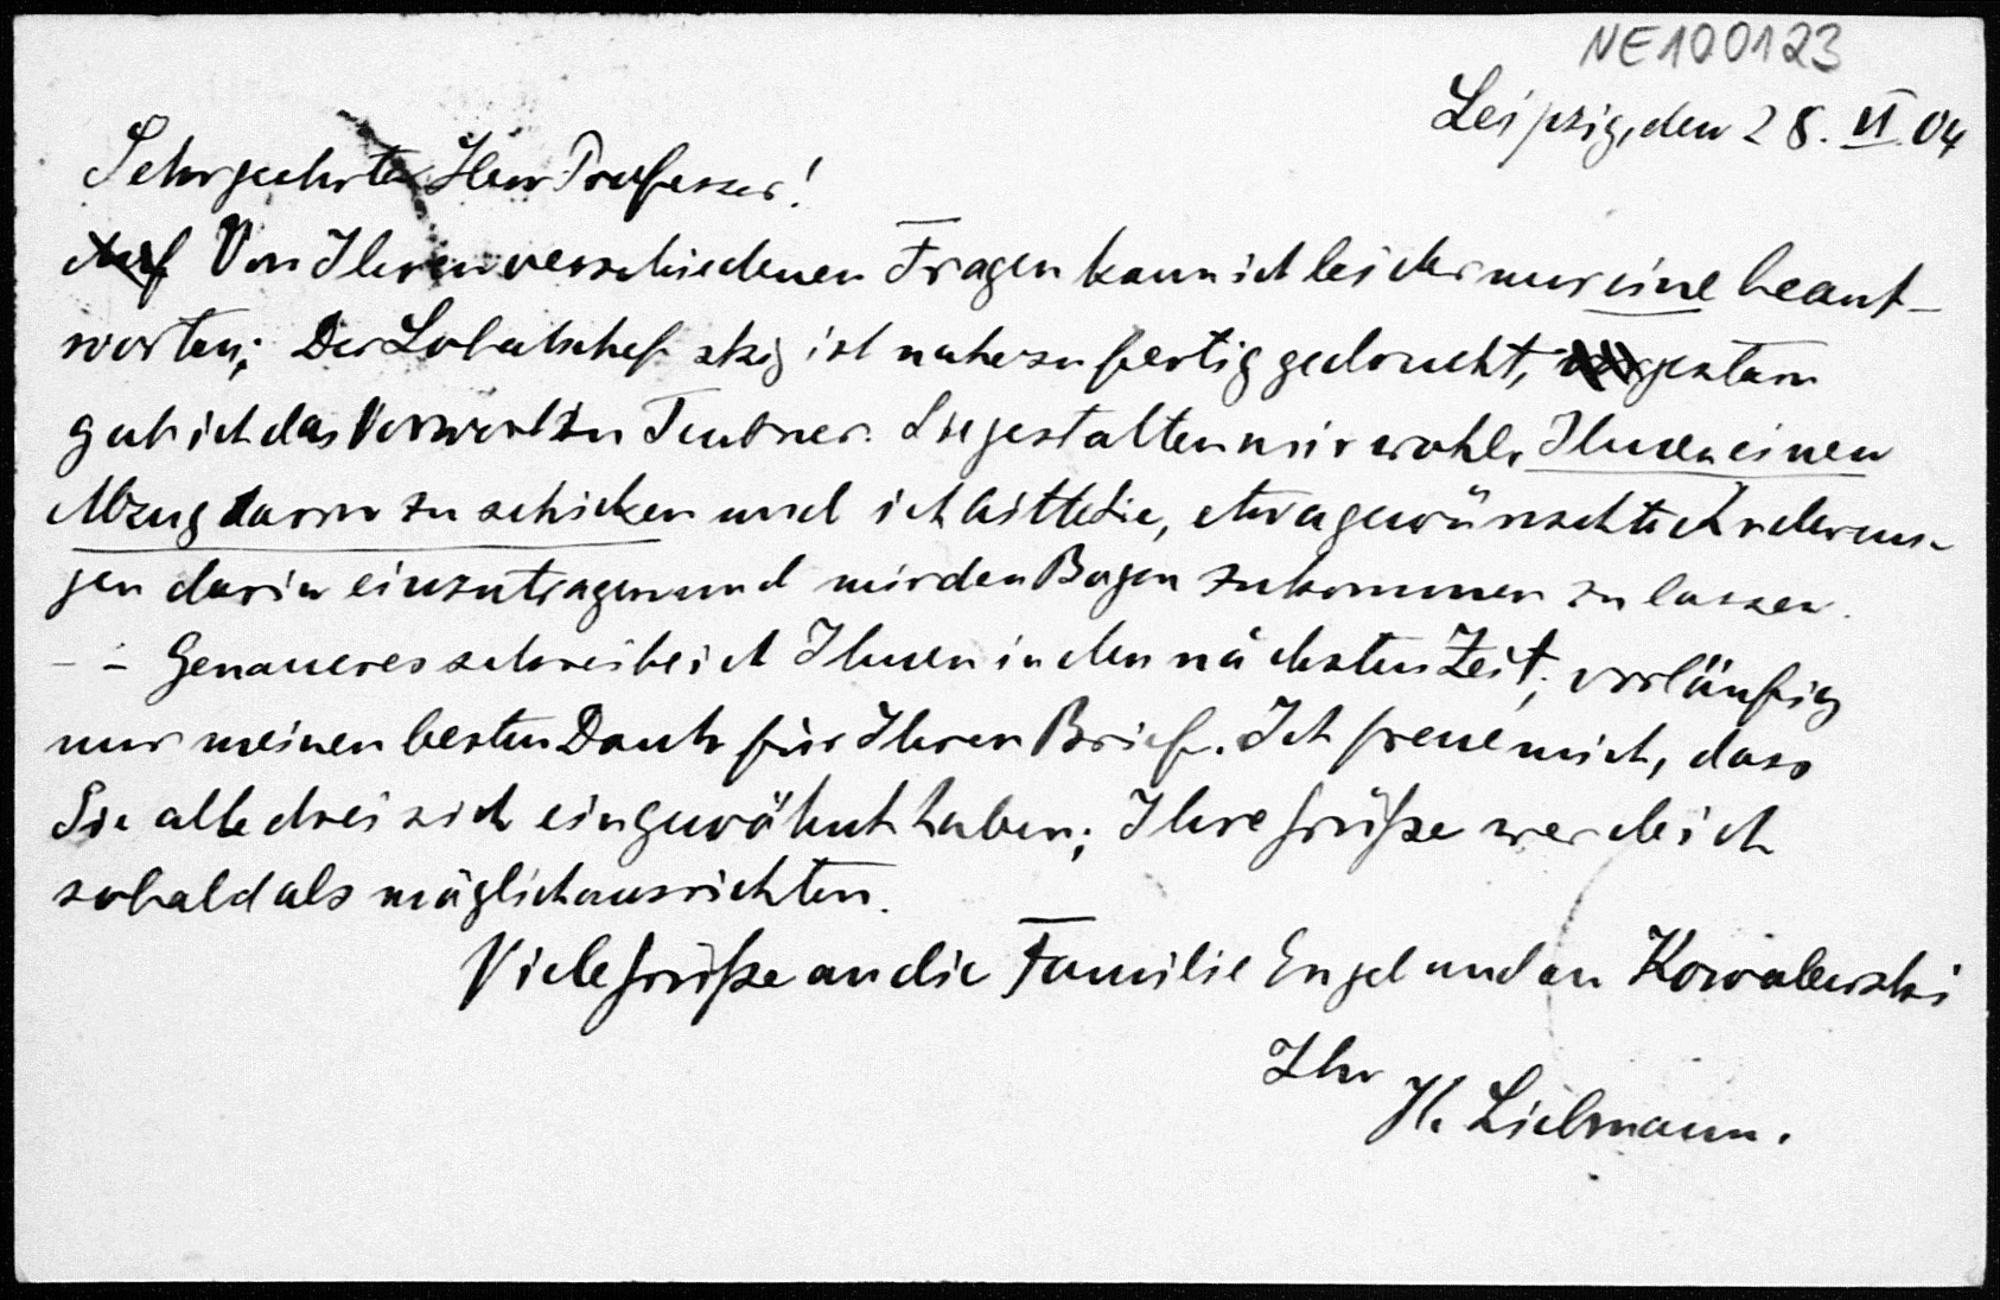 NE100123
Leipzig, den 28. VI. 04
Sehrgeehrter Herr Professor!
Auf Von Ihren verschiedenen Fragen kann ich leider nur eine beant-
worten; Der Lobatschefskij ist nahezu fertig gedruckt, gestern
gab ich das Vorwort zu Teubner. Sie gestatten mir wohl, Ihnen einen
Abzug davon zu schicken und ich bitte Sie, etwa gewünschte Änderun-
gen darin einzutragen und mir den Bogen zukommen zu lassen.
- - Genaueres schreibe ich Ihnen in den nächsten Zeit; vorläufig
nur meinen besten Dank für Ihren Brief. Ich freue mich, dass
Sie alle drei sich eingewöhnt haben; Ihre Grüße werde ich
sobald als möglich ausrichten.
Viele Grüße an die Familie Engel und an Kowalewski
Ihr
H. Liebmann.